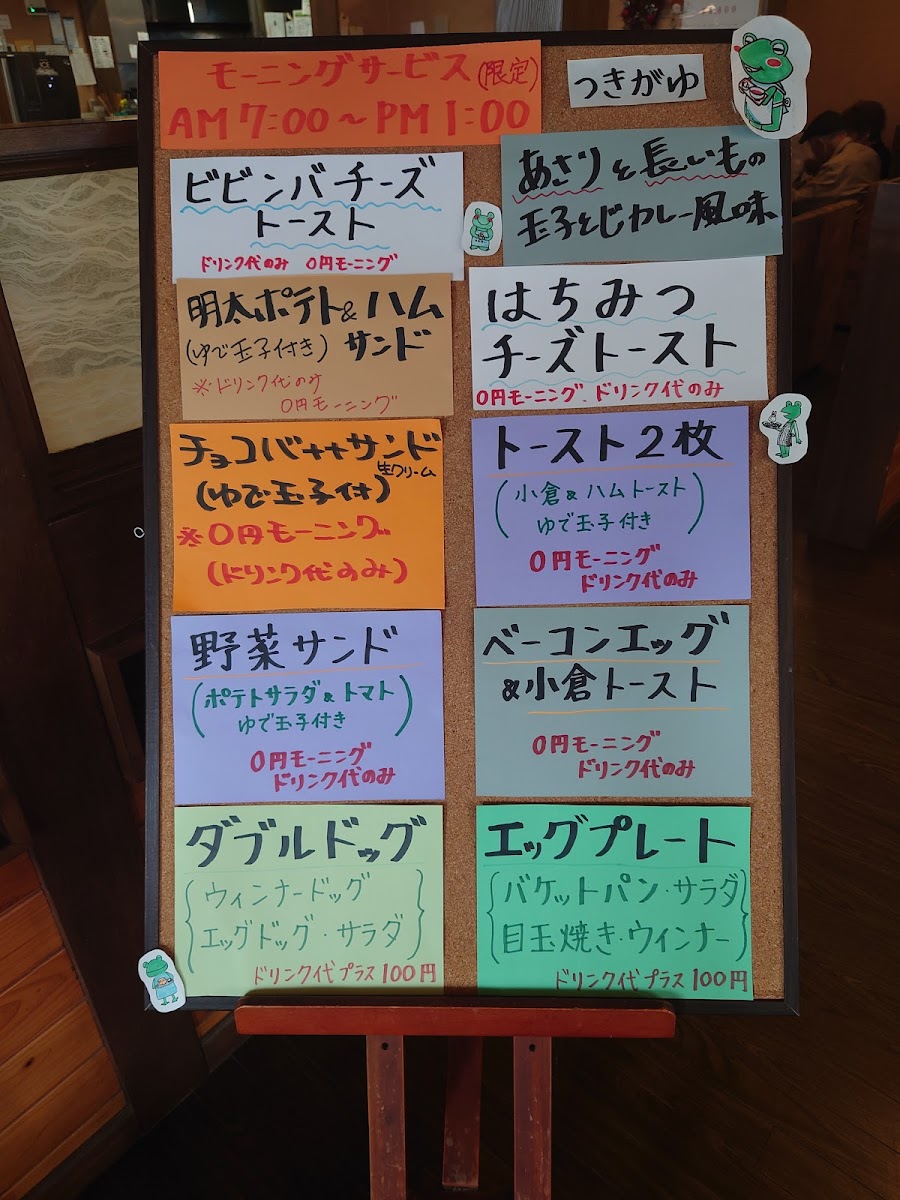 モーニングサービス(限定)
AM 7:00～PM 1:00
つきがゆ
あさりと長いもの
玉子とじカレー風味
ビビンバチーズ
トースト
ドリンク代のみ 0円モーニング
はちみつ
チーズトースト
0円モーニング.ドリンク代のみ
明太ポテト&ハム
(ゆで玉子付き) サンド
※ドリンク代のみ
0円モーニング
トースト2枚
(小倉&ハムトースト
ゆで玉子付き)
0円モーニング
ドリンク代のみ
チョコバナナサンド
生クリーム
(ゆで玉子付)
※0円モーニング
(ドリンク代のみ)
野菜サンド
(ポテトサラダ&トマト
ゆで玉子付き)
0円モーニング
ドリンク代のみ
ベーコンエッグ
&小倉トースト
0円モーニング
ドリンク代のみ
ダブルドッグ
{ウィンナードッグ
エッグドッグ・サラダ}
ドリンク代プラス100円
エッグプレート
{バケットパン・サラダ
目玉焼き・ウィンナー}
ドリンク代プラス100円